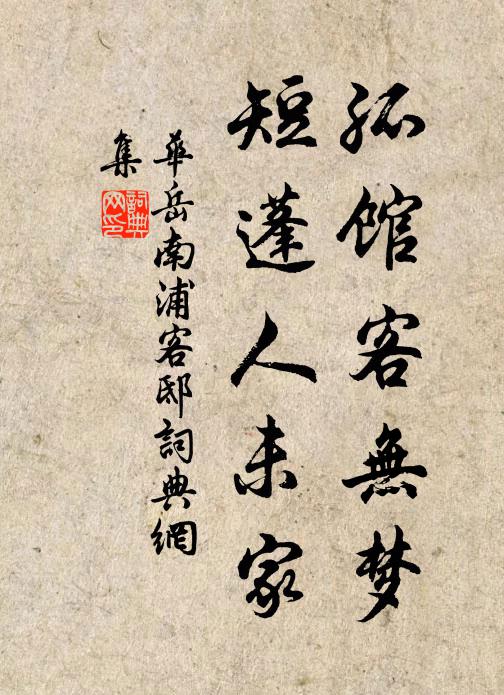 孤館客無梦
短蓬人未家
華岳南浦客邸詞典網
集
詞典
网印